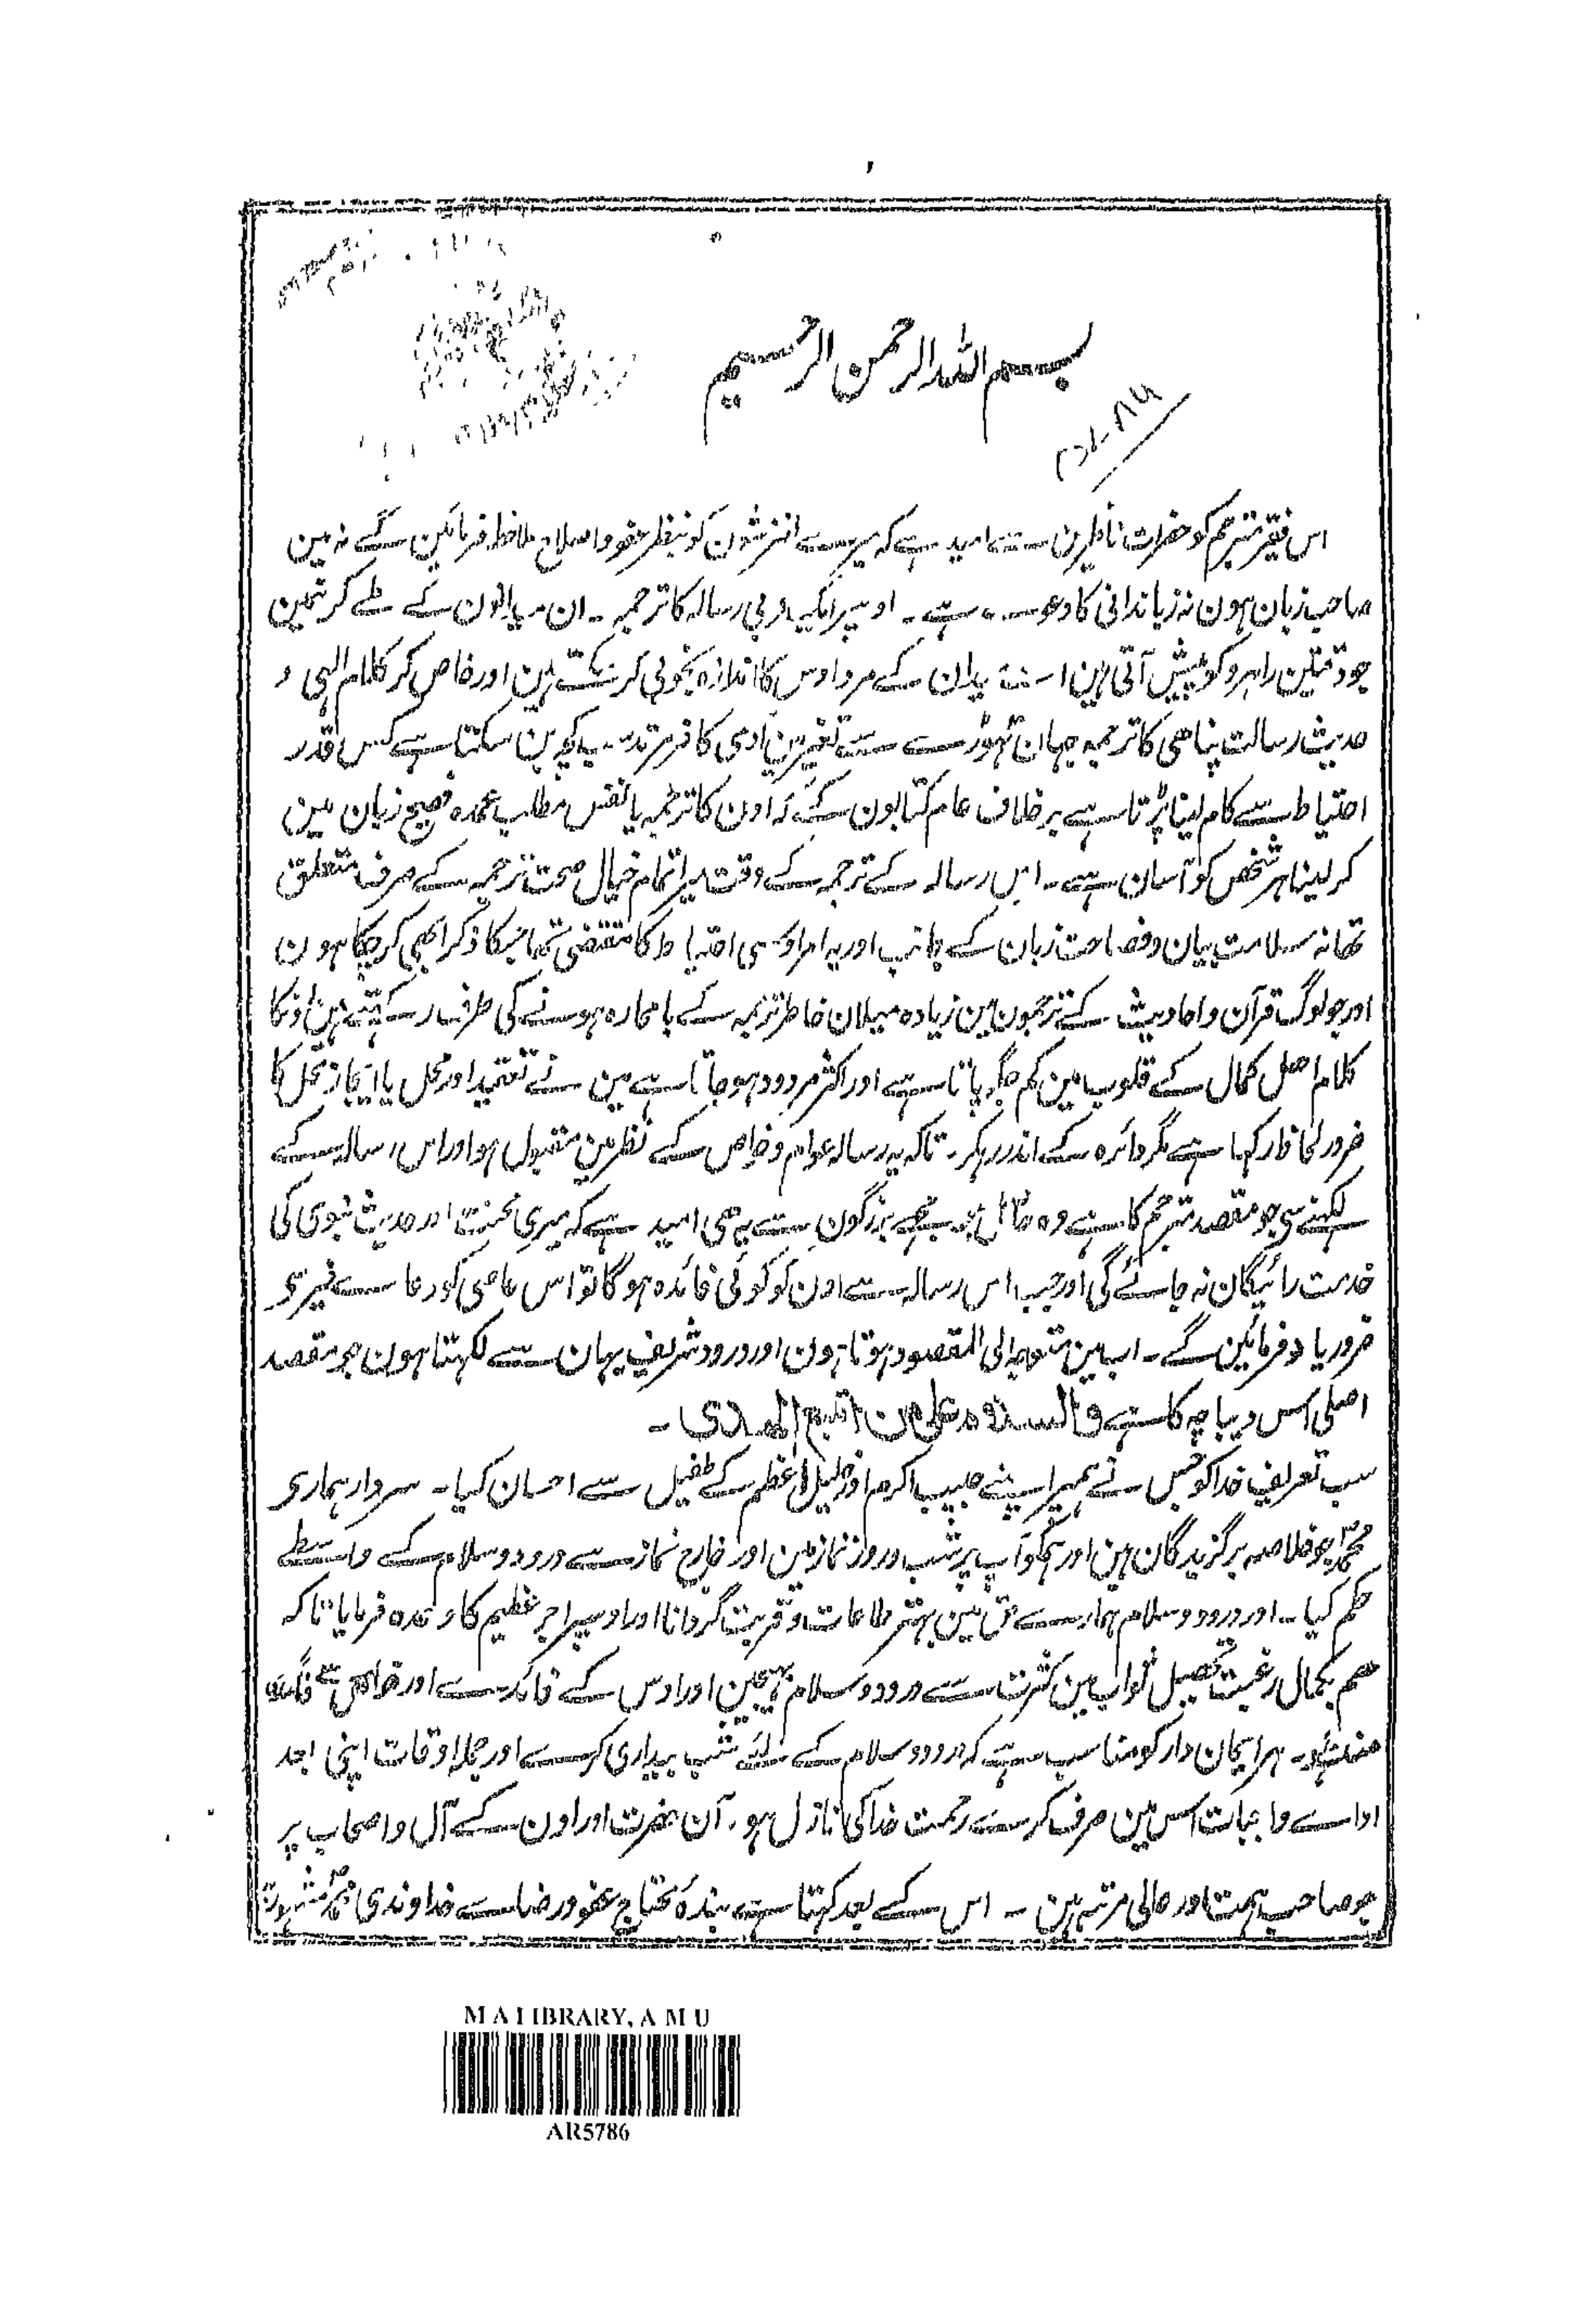 بسم اللہ الرحمن الرحیم
اس فقیر مترجم کو حضرات ناظرین سے امید ہے کہ میرے لغزشون کو بنظر عفو و اصلاح ملاحظہ فرمائین گے نہ مین
صاحب زبان ہون نہ زباندانی کا دعوے ہے ۔ اوسپر ایک عربی رسالہ کا ترجمہ ۔ ان کے طے کرنمین
جو دقتین راہرو کو پیش آتی ہین اس میدان کے مرد اوس کا اندازہ بخوبی کر سکتے ہین اور خاص کر کلام الہی و
حدیث رسالت پناھی کا ترجمہ جہان تہوڑے سے تغیر مین آدمی کافر مرتد سب کچھ بن سکتا ہے کس قدر
احتیاط سے کام لینا پڑتا ہے برخلاف عام کتابون کے کہ اون کا ترجمہ یا نفس مطلب عمدہ فصیح زبان مین
کر لینا ہر شخص کو آسان ہے ۔ اس رسالہ کے ترجمہ کے وقت میرا تمام خیال صحت ترجمہ کے صرف متعلق
تھا نہ سلاست بیان و فصاحت زبان کے جانب اور یہ امر اوسی احتیاط کا مقتضی تھا جسکا ذکر ابھی کر چکا ہون
اور جو لوگ قرآن و احادیث کے ترجمون مین زیادہ میلان خاطر ترجمہ کے با محاورہ ہونے کی طرف رکہتے ہین اونکا
کلام اھل کمال کے قلوب مین کم جگہ پاتا ہے اور اکثر مردود ہو جاتا ہے مین نے تعقید اور مخل یا ایجاز مخل کا
ضرور لحاظ رکہا ہے مگر دائرہ کے اندر رہکر ۔ تاکہ یہ رسالہ عوام و خواص کے نظر مین مقبول ہو اور اس رسالہ کے
لکہنے سی جو مقصد مترجم کا ہے وہ حاصل ہو مجھے بزرگون سے یہ ھی امید ہے کہ میری محنت اور حدیث نبوی کی
خدمت رائیگان نہ جائے گی اور جب اس رسالہ سے اون کو کوئی فائدہ ہوگا تو اس عاصی کو دعا سے خیر سے
ضرور یاد فرمائین گے ۔ اب مین متوجہ الی المقصود ہوتا ہون اور درود شریف یہان سے لکہتا ہون جو مقصد
اصلی اس دیباچہ کا ہے والسلام علی من اتبع الہدی ۔
سب تعریف خدا کو جس نے ہمپر اپنے حبیب اکرم اور خلیل اعظم کے طفیل سے احسان کیا ۔ سردار ہماری
محمدؐ جو خلاصہ برگزیدگان ہین اور ہمکو آپ پر شب و روز نماز مین اور خارج نماز سے درود و سلام کے واسطے
حکم کیا ۔ اور درود و سلام ہمارے حق مین بہتر طاعات و قربت گردانا اور اوسپر اجر عظیم کا وعدہ فرمایا تاکہ
ھم بکمال رغبت تحصیل ثواب مین کثرت سے درود و سلام بہیجین اور اوس کے فائدے اور خواص سے
ہر ایمان دار کو مناسب ہے کہ درود و سلام کے لئے شب بیداری کرے اور جملہ اوقات اپنی بعد
اداے واجبات اس مین صرف کرے رحمت خدا کی نازل ہو ۔ آن حضرت اور اون کے آل و اصحاب پر
جو صاحب ہمت اور عالی مرتبہ ہین ۔ اس کے بعد کہتا ہے بندہ محتاج عفو و رضاے خداوندی محمد
M A LIBRARY, A M U
AR5786